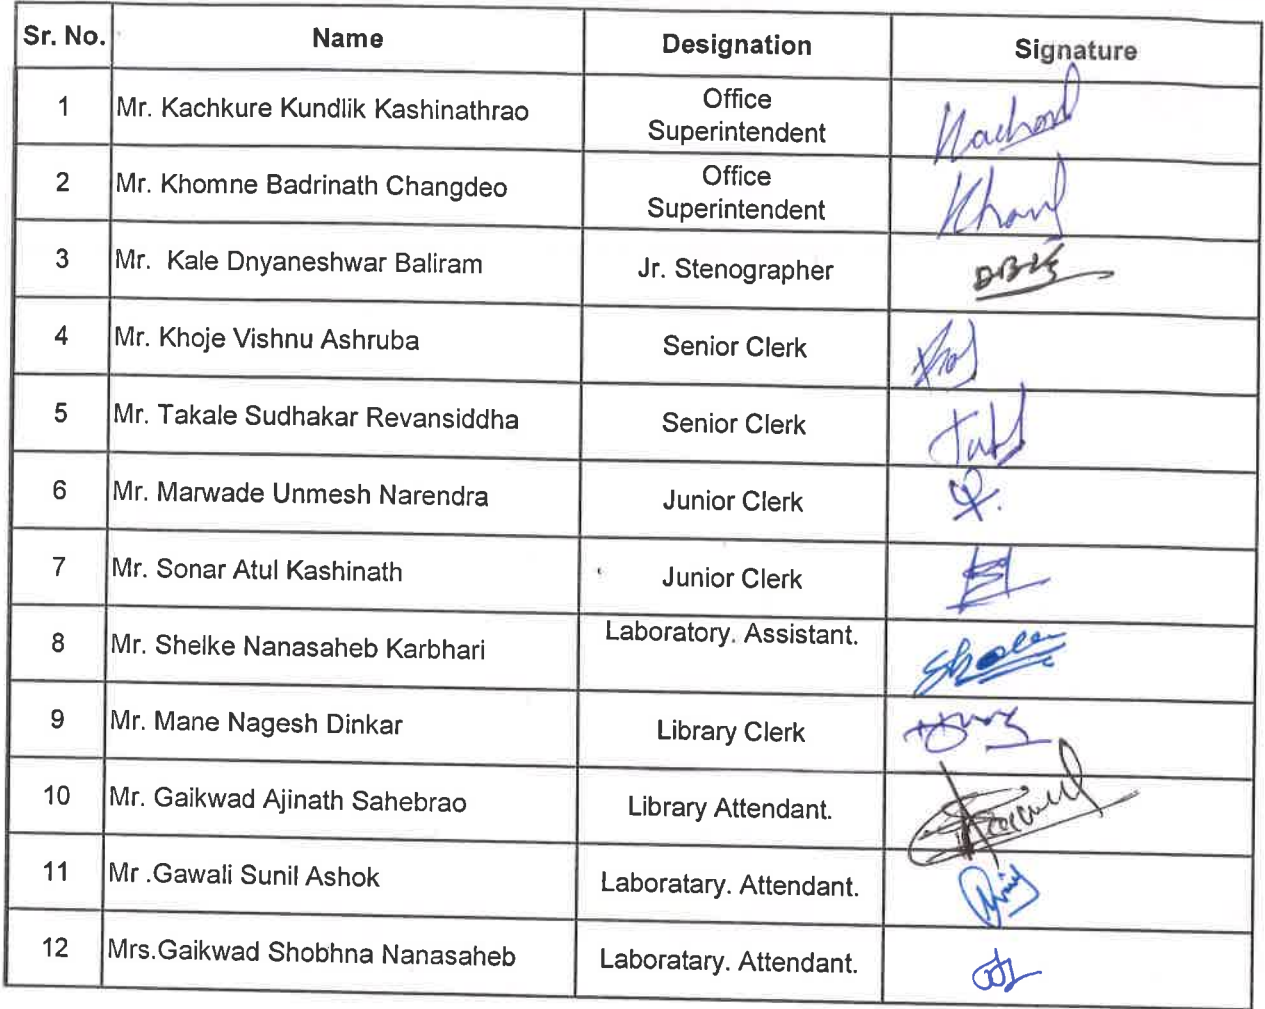 Sr. No. Name Designation Signature
1 Mr. Kachkure Kundlik Kashinathrao Office
Superintendent
2 Mr. Khomne Badrinath Changdeo Office
Superintendent
3 Mr. Kale Dnyaneshwar Baliram Jr. Stenographer
4 Mr. Khoje Vishnu Ashruba Senior Clerk
5 Mr. Takale Sudhakar Revansiddha Senior Clerk
6 Mr. Marwade Unmesh Narendra Junior Clerk
7 Mr. Sonar Atul Kashinath Junior Clerk
8 Mr. Shelke Nanasaheb Karbhari Laboratory. Assistant.
9 Mr. Mane Nagesh Dinkar Library Clerk
10 Mr. Gaikwad Ajinath Sahebrao Library Attendant.
11 Mr .Gawali Sunil Ashok Laboratary. Attendant.
12 Mrs.Gaikwad Shobhna Nanasaheb Laboratary. Attendant.